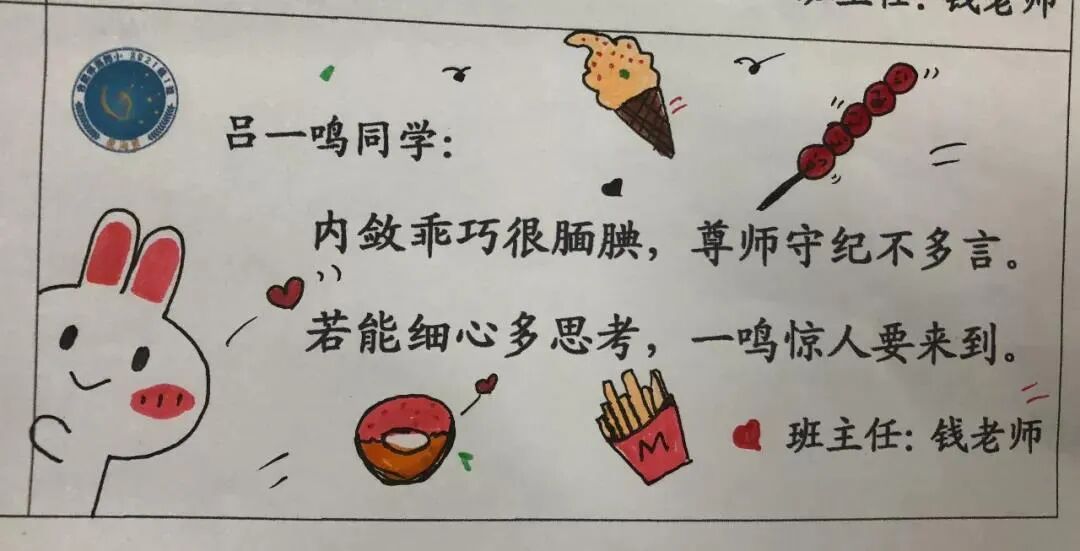 班主任：钱老师
吕一鸣同学：
内敛乖巧很腼腆，尊师守纪不多言。
若能细心多思考，一鸣惊人要来到。
M
班主任：钱老师